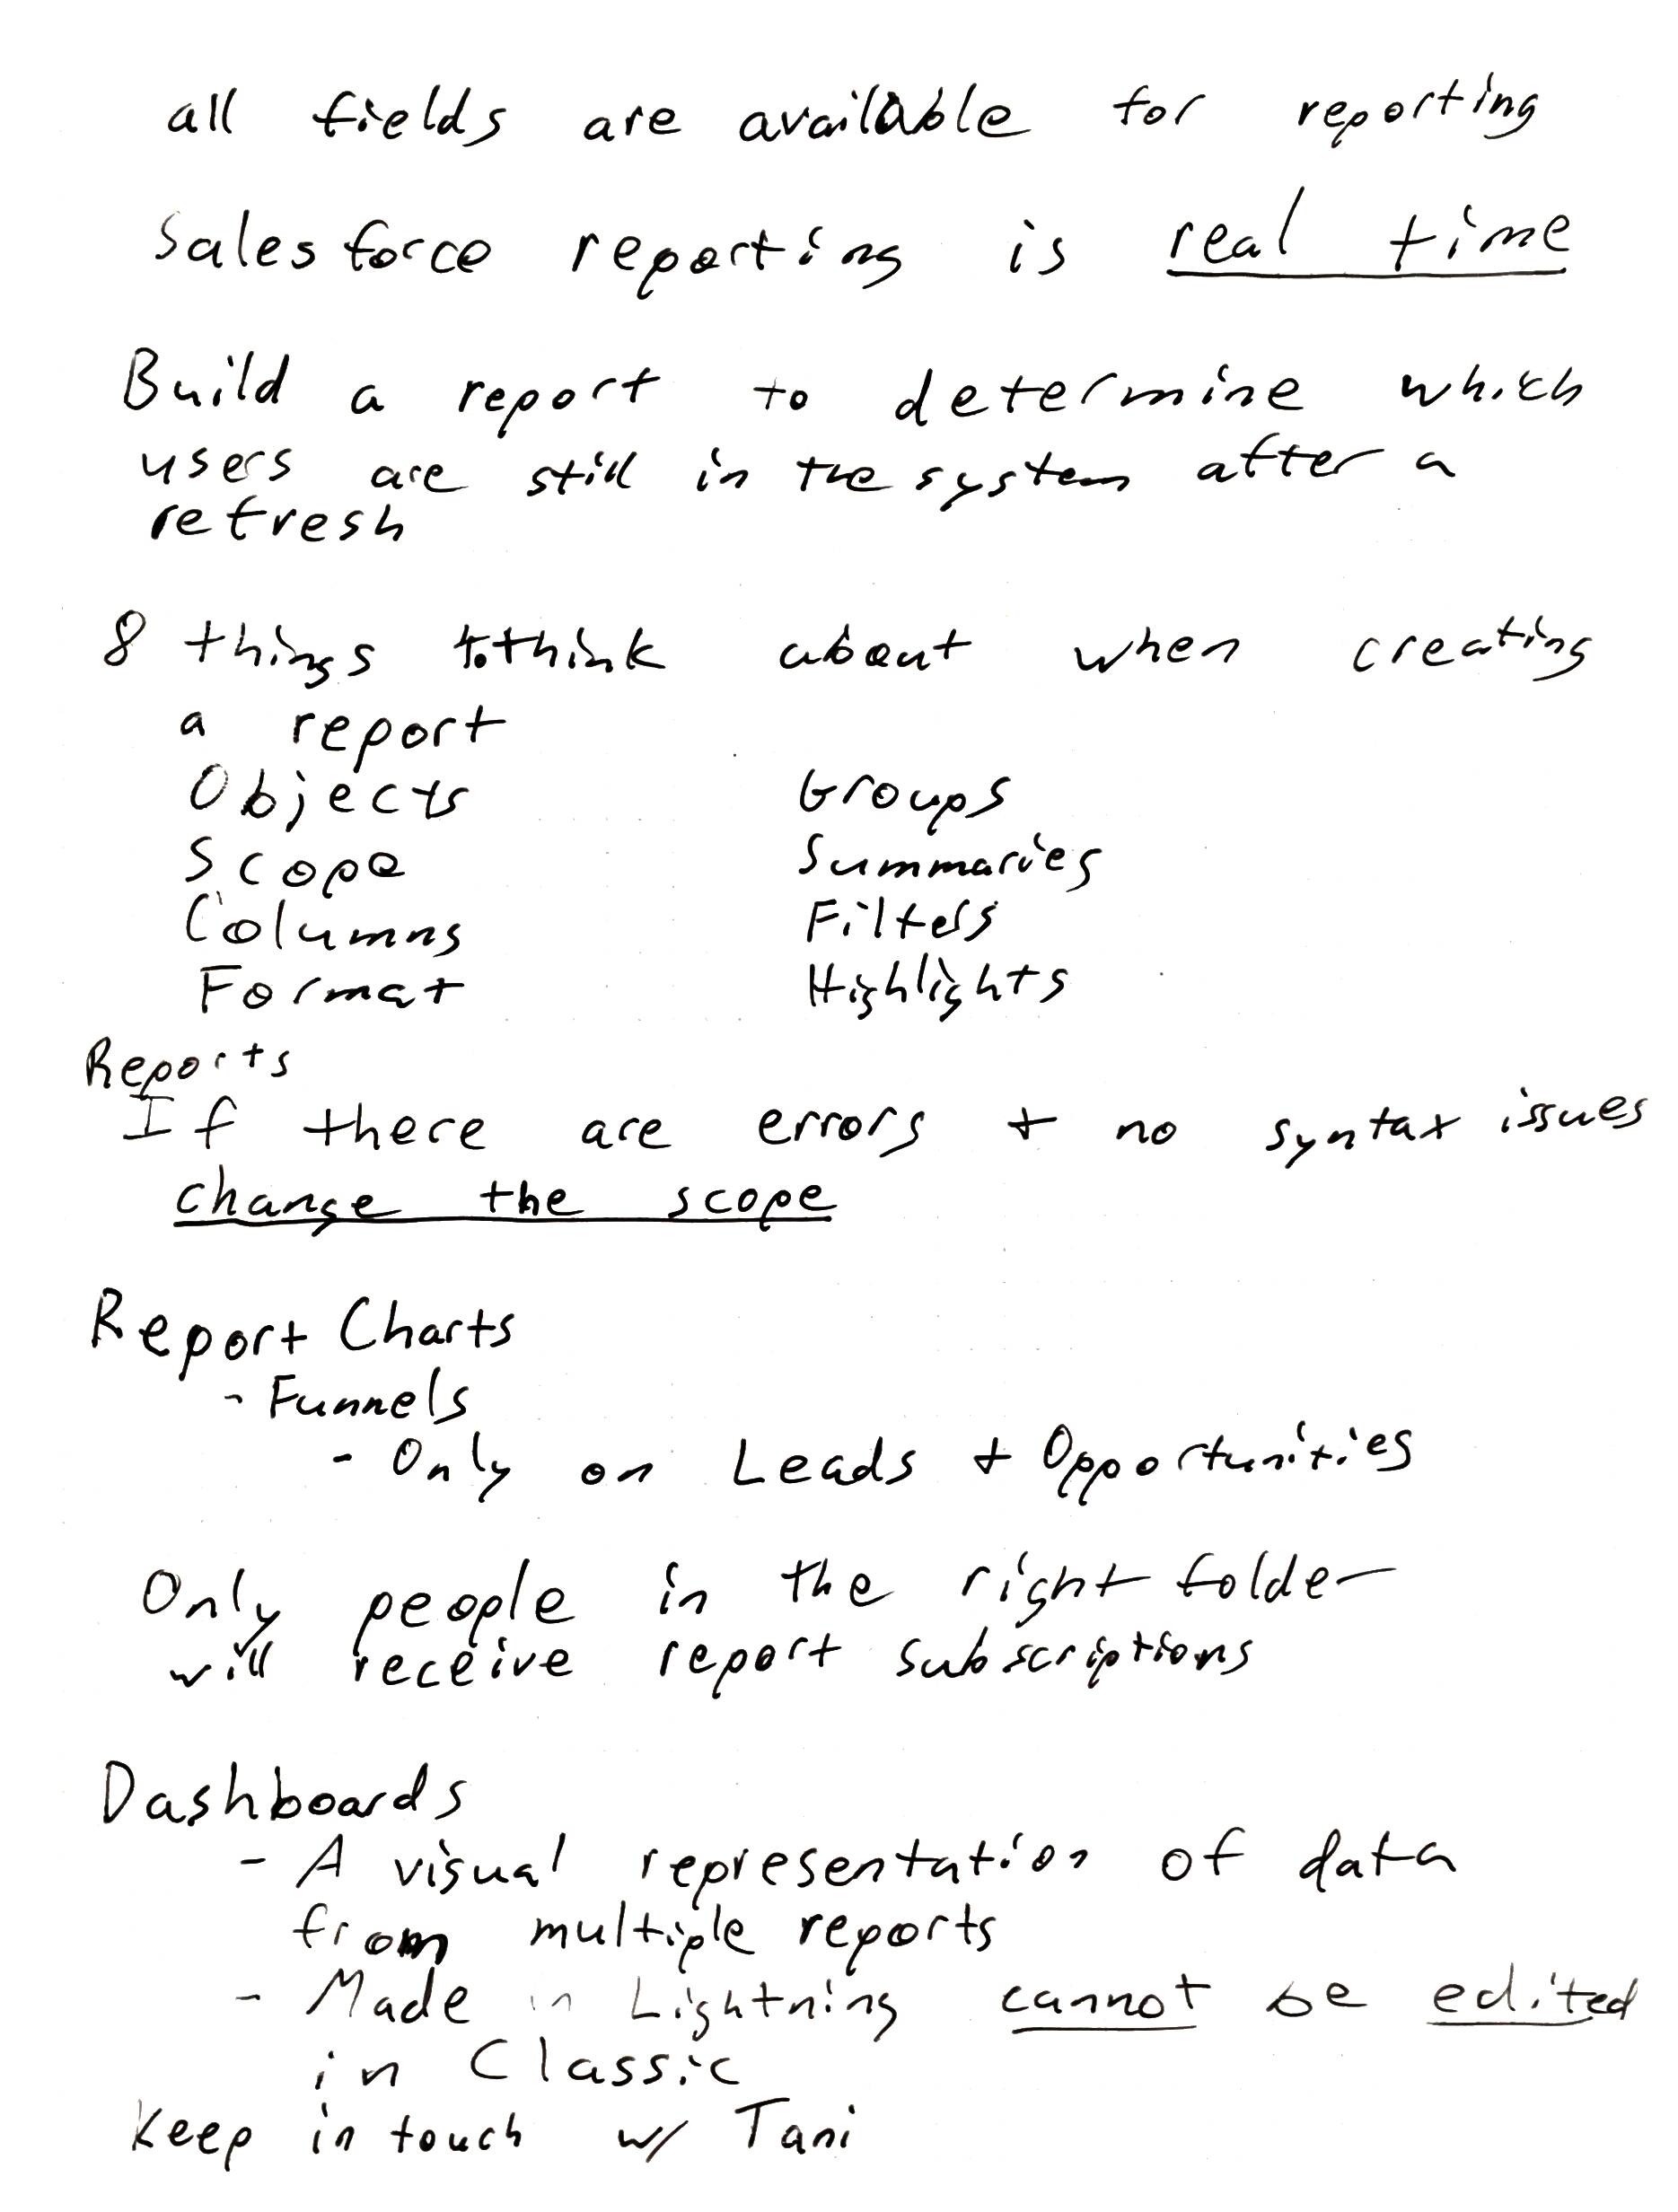 all fields are available for reporting
Salesforce reporting is real time
Build a report to determine which
users are still in the system after a
refresh
8 things to think about when creating
a report
Objects Groups
Scope Summaries
Columns Filters
Format Highlights
Reports
If there are errors + no syntax issues
change the scope
Report Charts
- Funnels
- Only on Leads + Opportunities
Only people in the right folder
will receive report subscriptions
Dashboards
- A visual representation of data
from multiple reports
- Made in Lightning cannot be edited
in Classic
Keep in touch w/ Tani